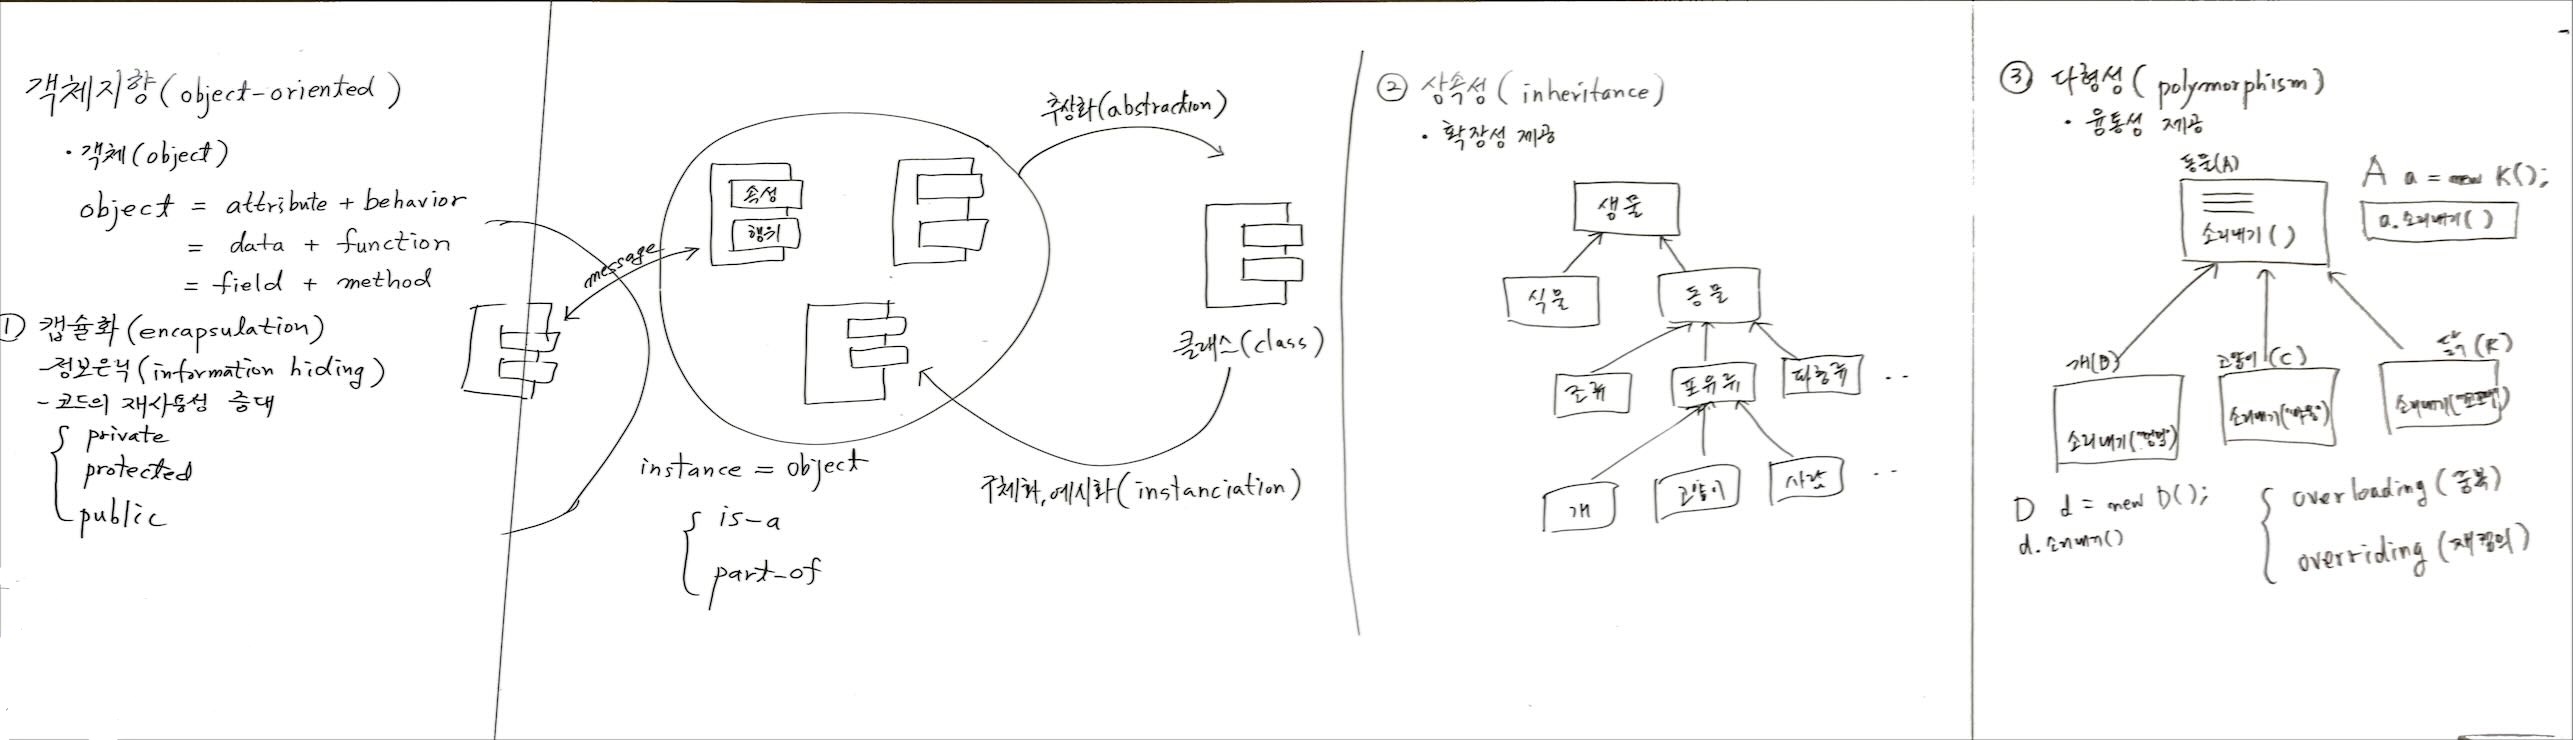 객체지향(object-oriented)
· 객체(object)
object = attribute + behavior
= data + function
= field + method
① 캡슐화(encapsulation)
- 정보은닉(information hiding)
- 코드의 재사용성 증대
private
protected
public
message
속성
행위
추상화(abstraction)
클래스(class)
구체화,예시화(instanciation)
instance = object
is-a
part-of
② 상속성(inheritance)
· 확장성 제공
생물
식물
동물
조류
포유류
파충류
··
개
고양이
사람
··
③ 다형성(polymorphism)
· 융통성 제공
동물(A)
소리내기()
A a = new K();
a.소리내기()
개(D)
소리내기("멍멍")
고양이(C)
소리내기("야옹")
닭(K)
소리내기("꼬꼬댁")
D d = new D();
d.소리내기()
overloading(중복)
overriding(재정의)